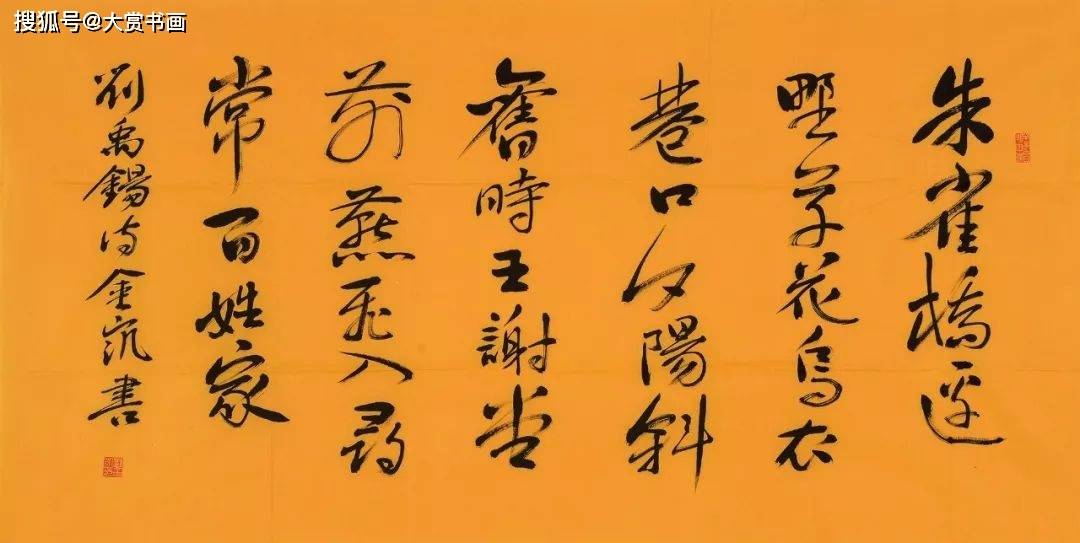 搜狐号@大赏书画
朱雀橋邊
野草花烏衣
巷口夕陽斜
舊時王謝堂
前燕飛入尋
常百姓家
劉禹錫詩金書